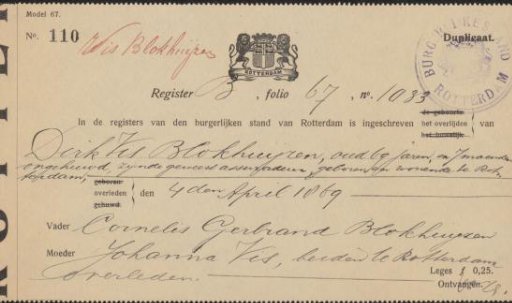 Model 67.
Nº. 110
Vis Blokhuijzen
ROTTERDAM
Duplicaat.
BURG. STAND
ROTTERDAM
Register B, folio 67, nº. 1033
de geboorte
In de registers van den burgerlijken stand van Rotterdam is ingeschreven het overlijden van
het huwelijk
Dirk Vis Blokhuijzen, oud 69 jaren, en 7 maanden
ongehuwd, zijnde geweest assuradeur, geboren en wonende te Rot-
terdam,
geboren
overleden den 4 den April 1869
gehuwd
Vader Cornelis Gerbrand Blokhuizen
Moeder Johanna Vis, beiden te Rotterdam
overleden.
Leges f 0,25.
Ontvangen